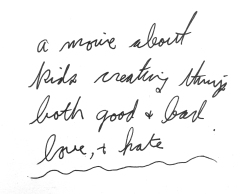 a movie about
kids creating things
both good & bad
love, + hate